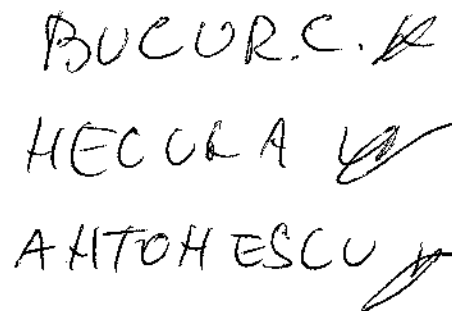 BUCUR.C.
HECURA
ANTONESCU